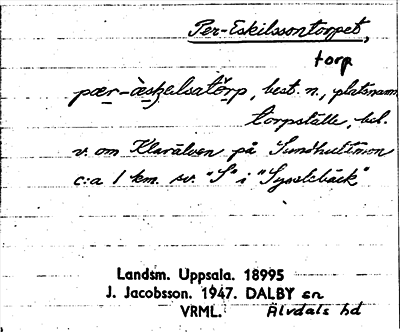 Per-Eskilssontorpet,
torp
pær-àskelsatòrp, best. n., platsnamn
torpställe, bel.
v. om Klarälven på Sundhultmon
c:a 1 km. sv. "S" i "Sysslebäck"
Landsm. Uppsala. 18995
J. Jacobsson. 1947. DALBY sn
VRML. Älvdals hd